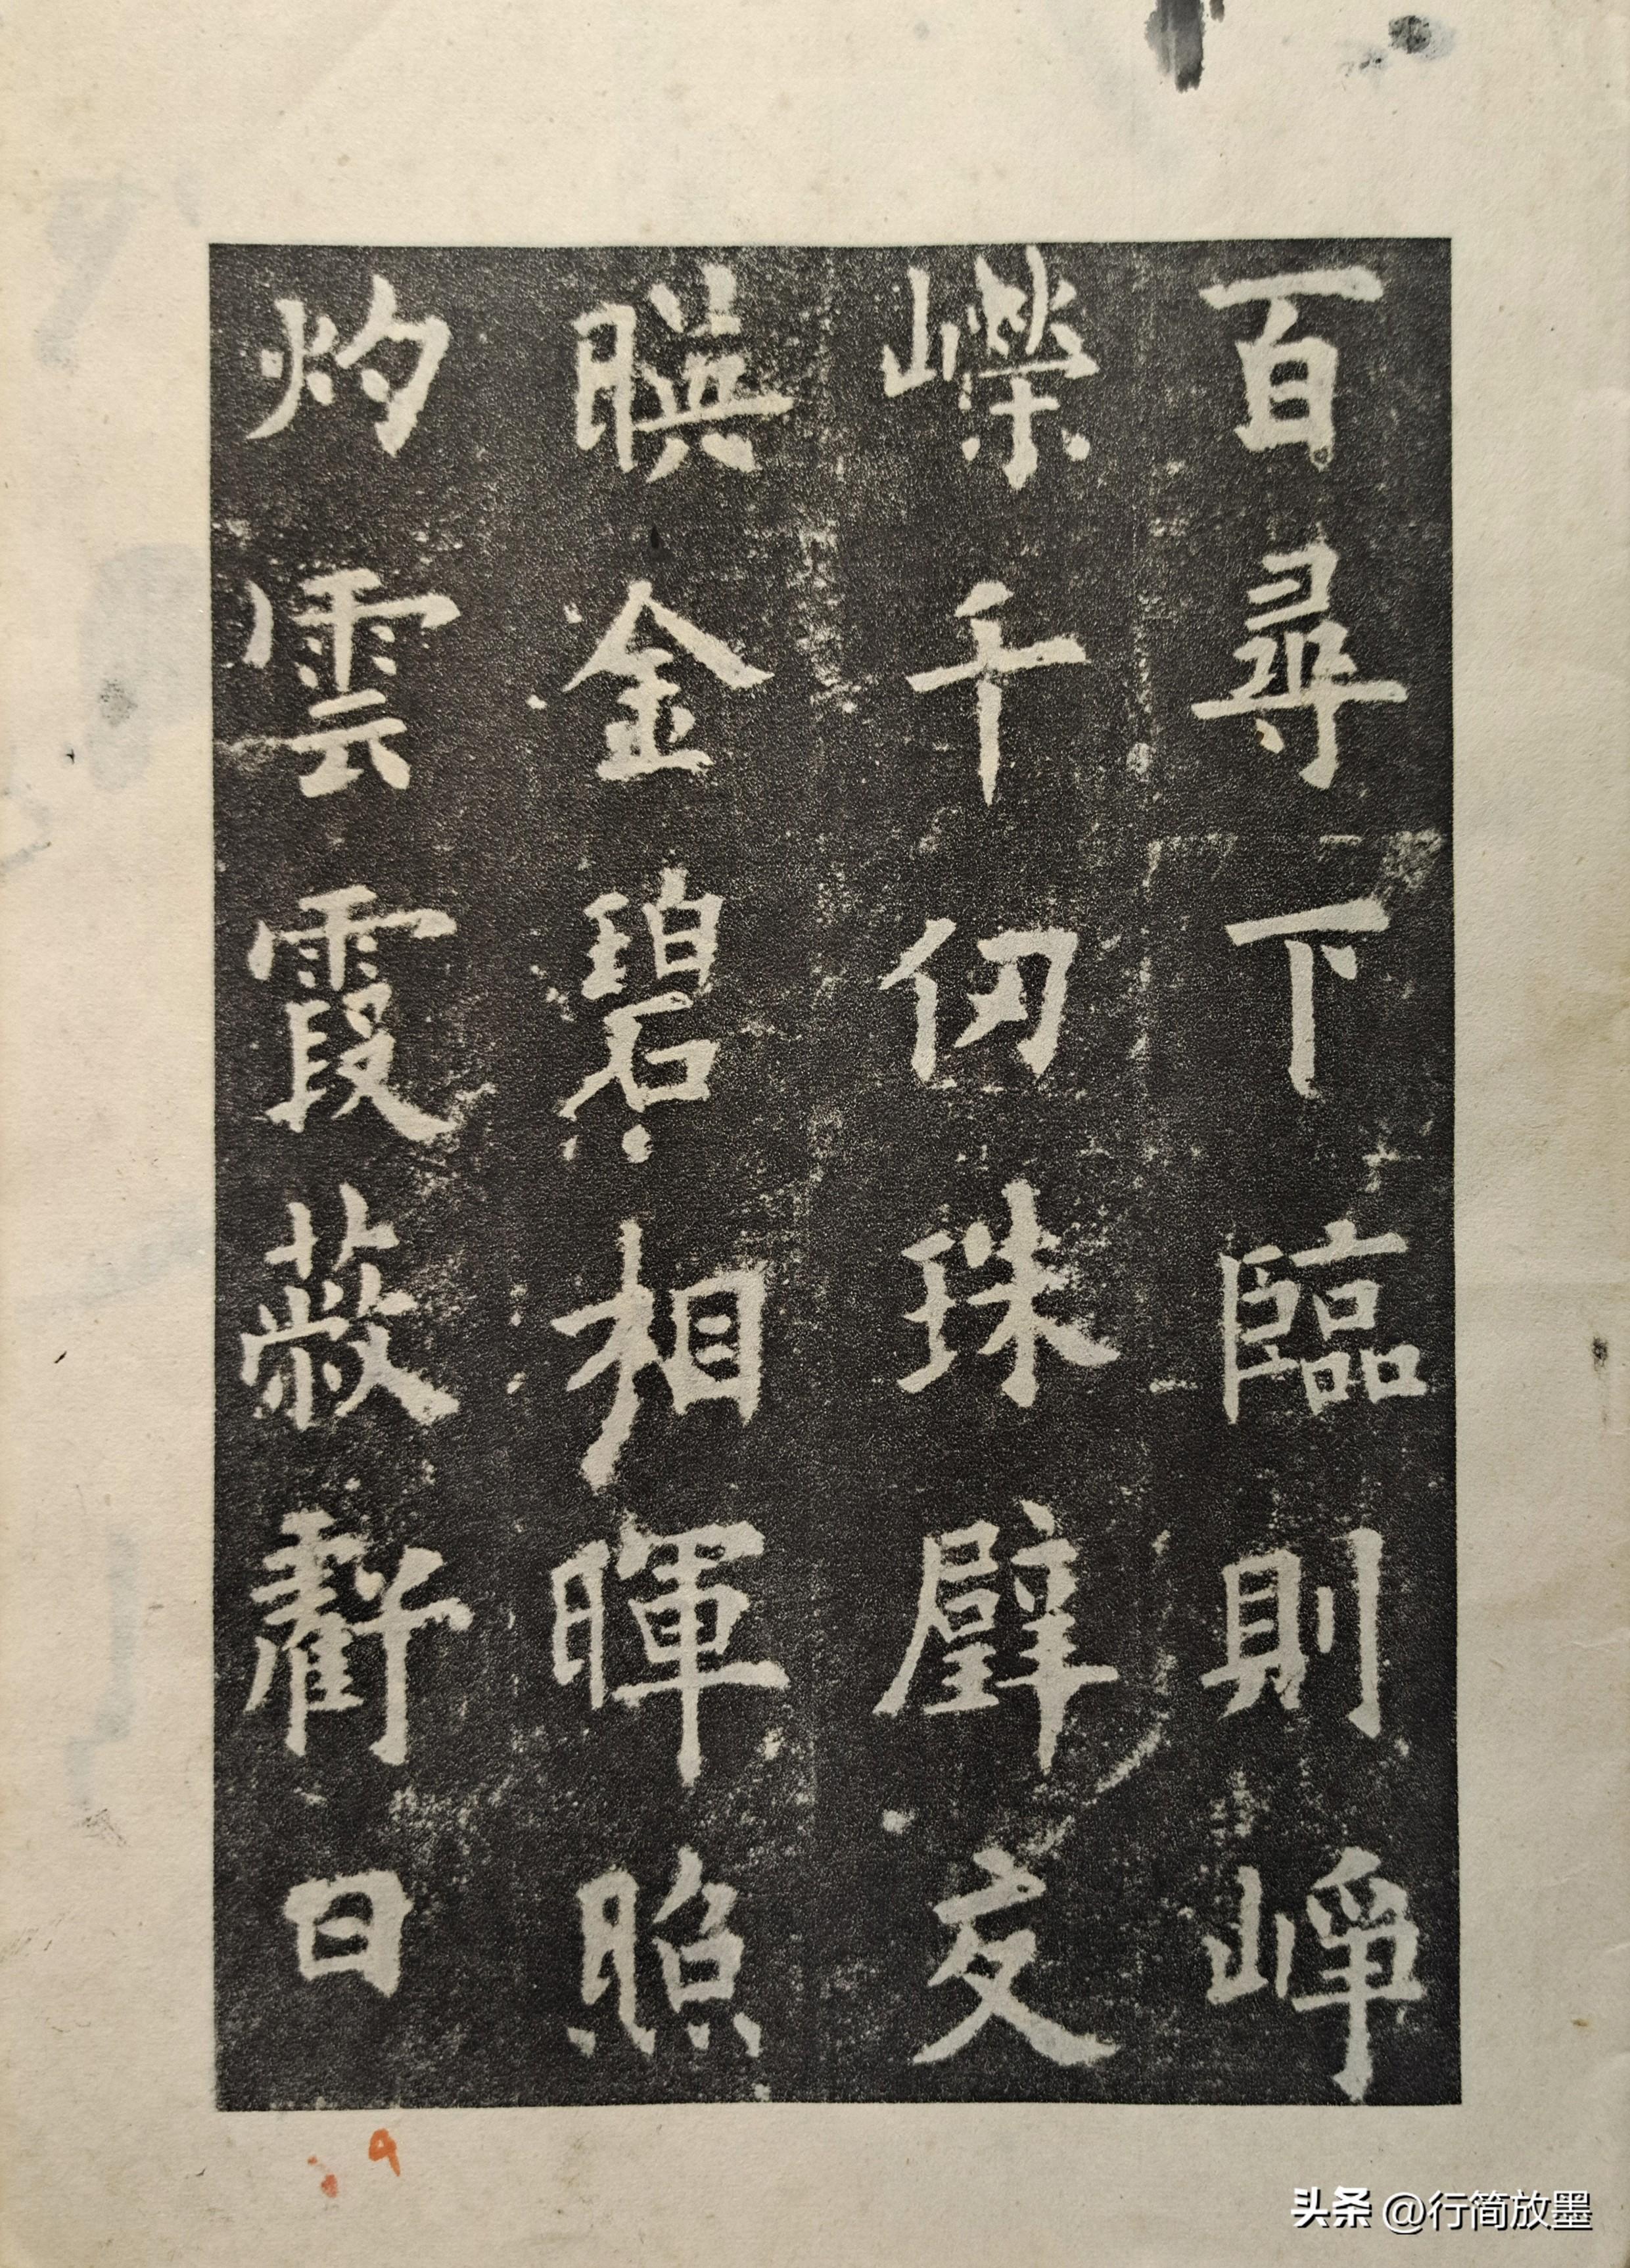 百尋下臨則崢
嶸千仞珠璧交
暎金碧相暉照
灼雲霞蔽虧日
9
头条 @行简放墨